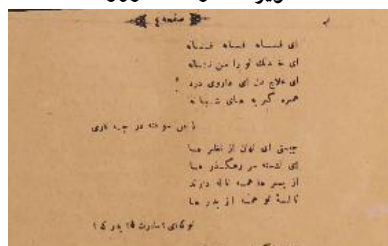 صفحه ٤
ای فسانه فسانه فسانه
ای خدنگ تو را من نشانه
ای علاج دل ای داروی درد
همره گریه های شبانه
با من سوخته در چه کاری
چیستی ای نهان از نظر ها
ای نشسته سر رهگذر ها
از پسر ها همه ناله دارند
نالهٔ تو همه از پدر ها
تو که‌ای؟ مادرت که؟ پدر که؟